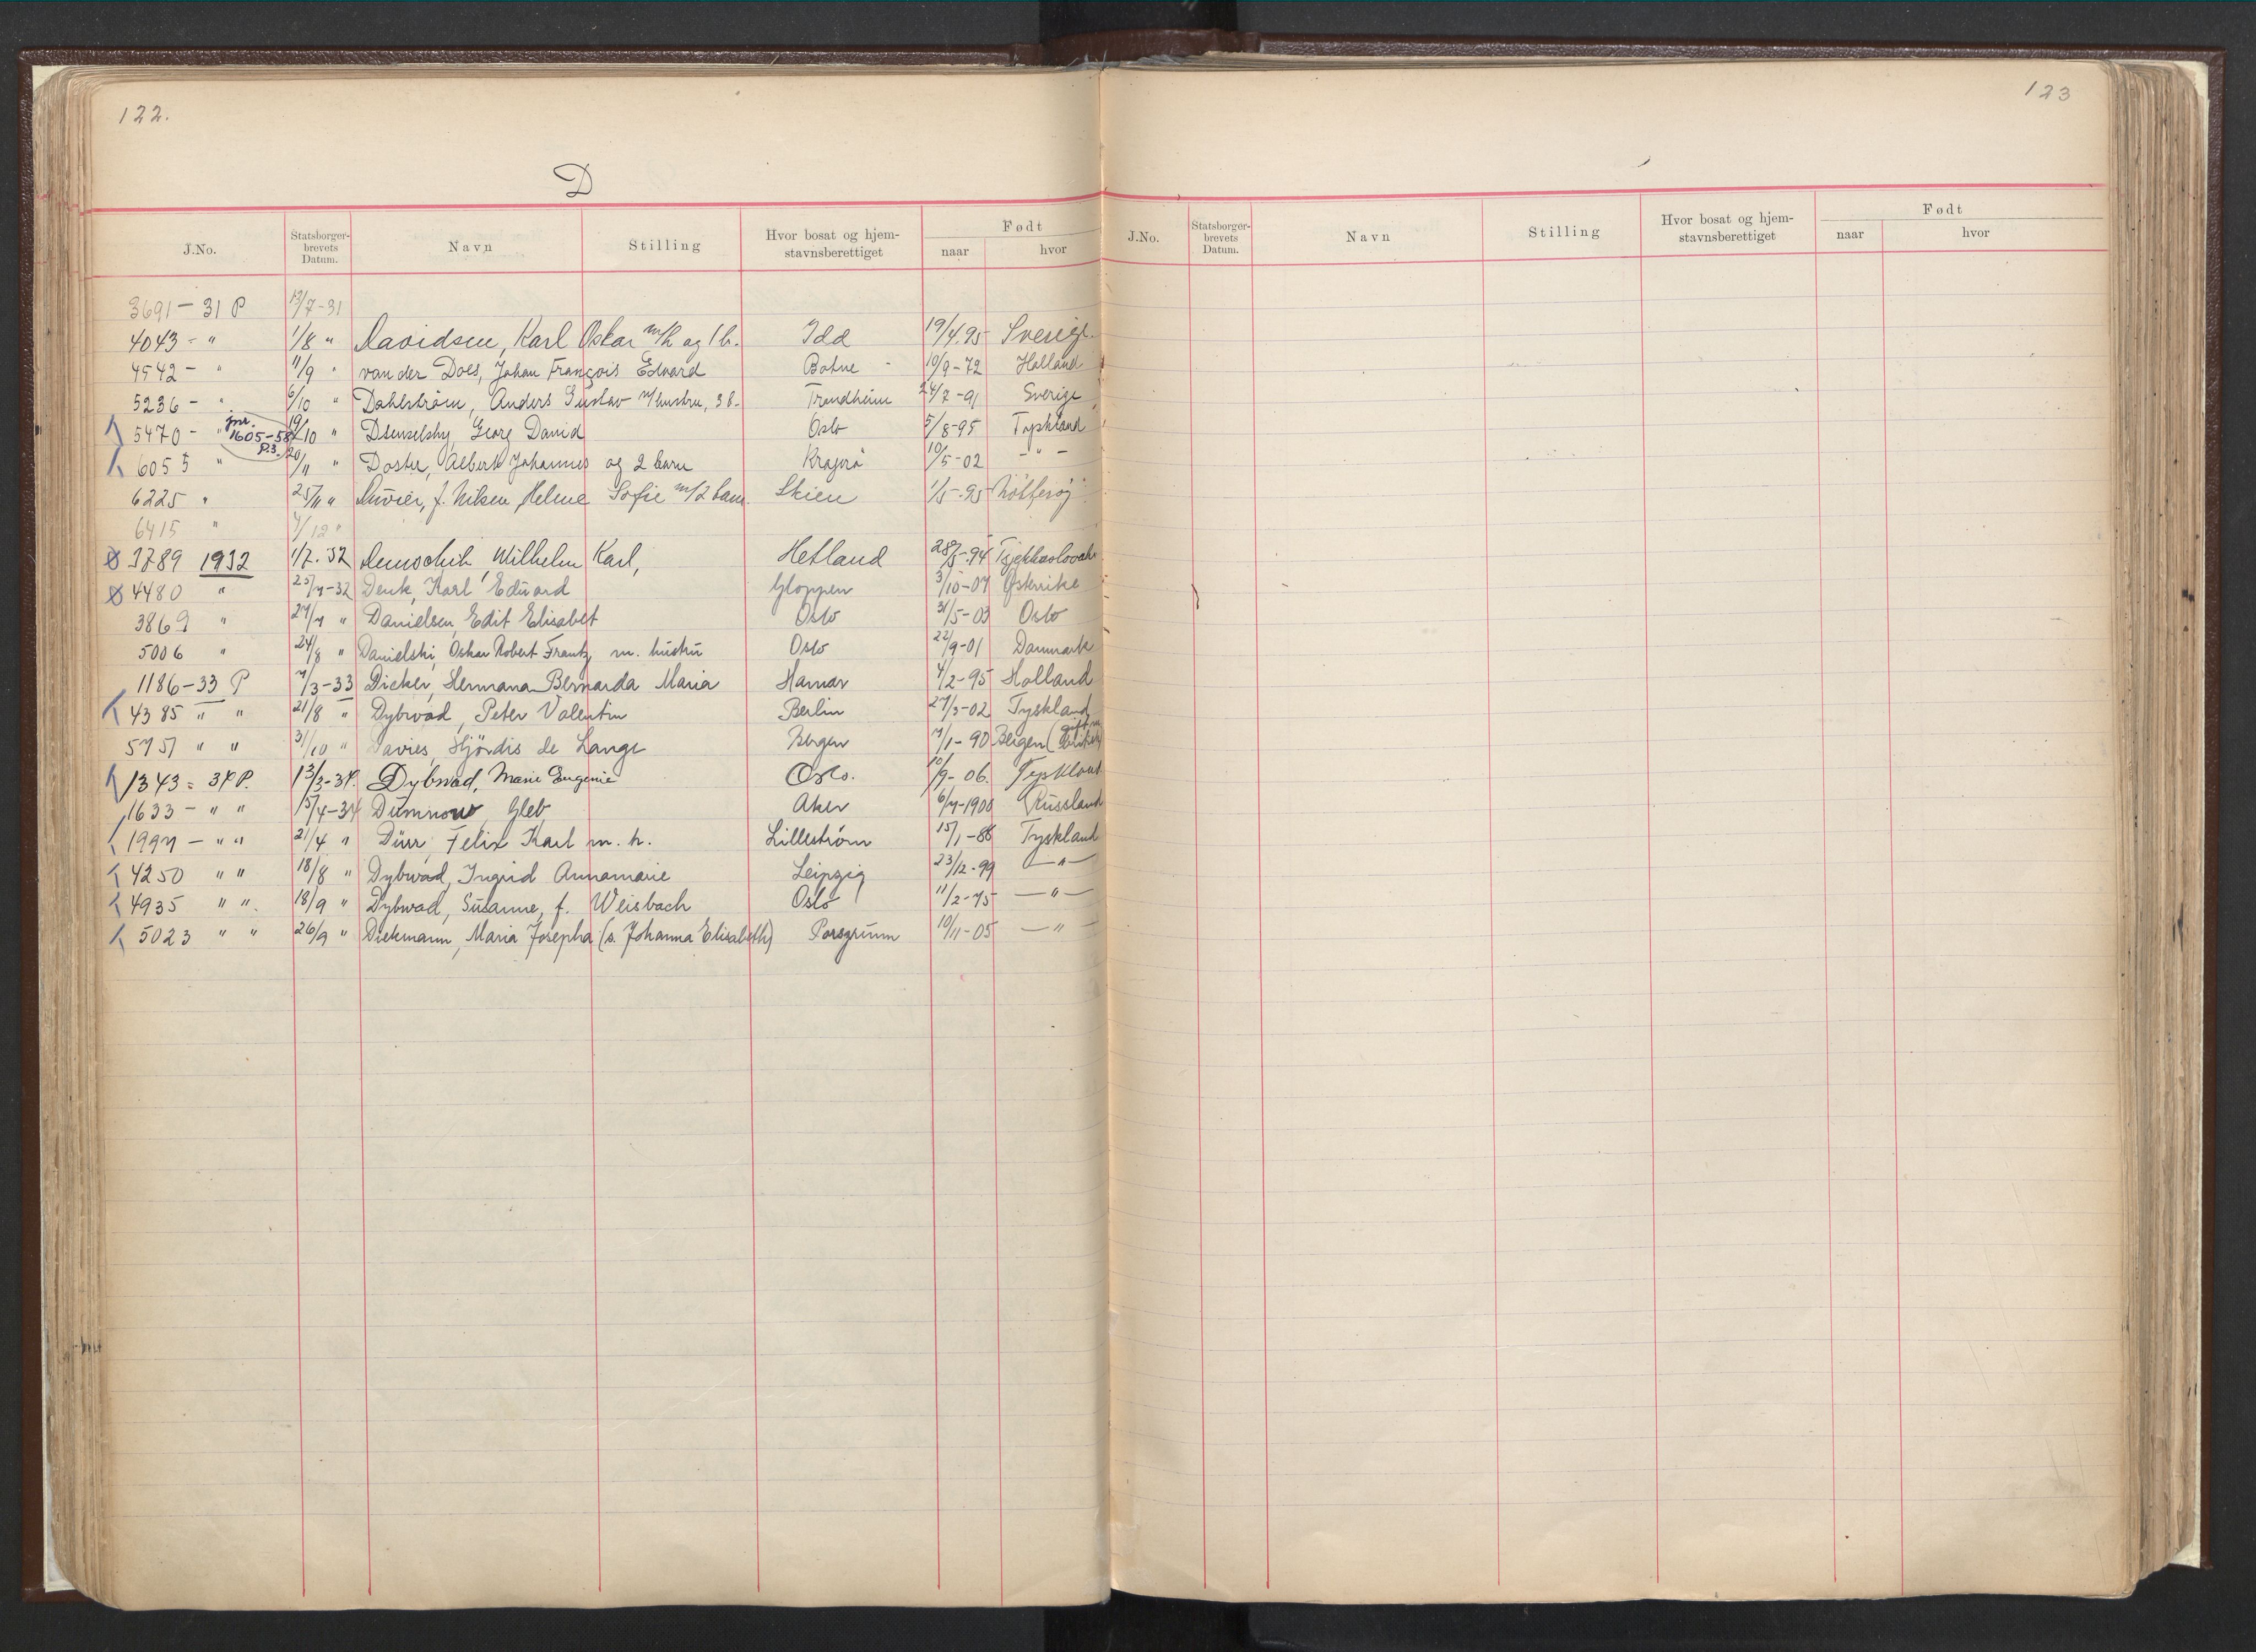 122.
D
J.No. Statsborgerbrevets Datum. Navn Stilling Hvor bosat og hjemstavnsberettiget Født naar hvor
3691 - 31 P 13/7-31
4043 - " 1/8 " Davidsen, Karl Oskar m/h og 1 b. Idd 19/4.95 Sverige
4542 - " 11/9 " van der Does, Johan François Edvard Botne 10/9-72 Holland
5236 - " 6/10 " Dahlström, Anders Gustav m/hustru, 3 b. Trondheim 24/7-91 Sverige
5470 - " jnr. 1605-58 P.3. 19/10 " Georg David Oslo 5/8-95 Tyskland
6055 " 20/11 " Doster, Albert Johannes og 2 barn Kragerö 10/5-02 - " -
6225 " 25/11 " f. Nilsen, Helene Sofie m/2 barn Skien 1/5-95
6415 " 4/12 "
3789 1932 1/7.32 Wilhelm Karl, Hetland 28/5-94
4480 " 25/7-32 Denk, Karl Eduard Gloppen 3/10-07 Østerrike
3869 " 27/7 " Danielsen, Edit Elisabet Oslo 31/5-03 Oslo
5006 " 24/8 " Danielski, Oskar Robert Frantz m. hustru Oslo 22/9-01 Danmark
1186-33 P 7/3-33 Dieker, Hermana Bernarda Maria Hamar 4/2-95 Holland
4385 " " 21/8 " Dybwad, Peter Valentin Berlin 27/3-02 Tyskland
5757 " " 31/10 " Davies, Hjördis de Lange Bergen 7/1-90 Bergen (
1343 = 34 P. 13/3-34. Dybwad, Marie Eugenie Oslo. 10/9-06. Tyskland
1633 - " " 5/4-34 Dumnow, Gleb Aker 6/7-1900 Russland
1997 - " " 21/4 " Dürr, Felix Karl m. h. Lilleström 15/1-88 Tyskland
4250 " " 18/8 " Dybwad, Ingrid Annamarie Leipzig 23/12-99 - " -
4935 " ". 18/9 " Dybwad, Susanne, f. Weisbach Oslo 11/2-75 - " -
5023 " " 26/9 " Diekmann, Maria Josepha (s. Johanna Elisabeth) Porsgrunn 10/11-05 - " -
123
J.No. Statsborgerbrevets Datum. Navn Stilling Hvor bosat og hjemstavnsberettiget Født naar hvor